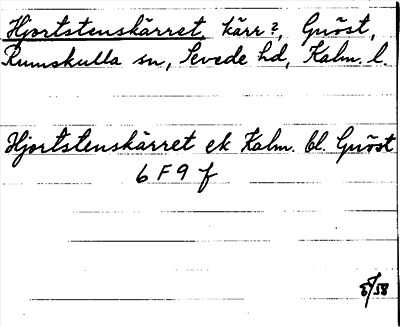 Hjortstenskärret, kärr?, Gnöst,
Rumskulla sn, Sevede hd, Kalm. l.
Hjortstenskärret ek Kalm. bl. Gnöst
6 F 9 f